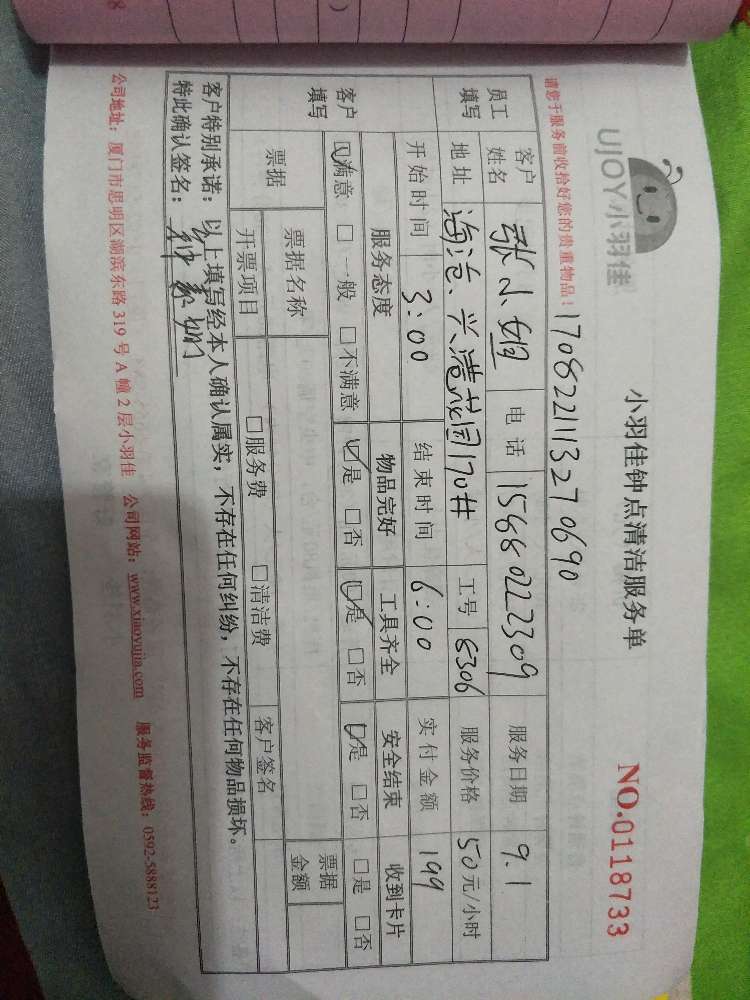 UJOY小羽佳
小羽佳钟点清洁服务单
NO.0118733
请您于服务前收拾好您的贵重物品！
1708221113270690
员工填写
客户姓名 张小姐 电话 15880222309 服务日期 9.1
地址 海沧、兴港花园170# 工号 8306 服务价格 50元/小时
开始时间 3:00 结束时间 6:00 实付金额 199
客户填写
服务态度 物品完好 工具齐全 安全结束 收到卡片
☑满意 □一般 □不满意 ☑是 □否 ☑是 □否 ☑是 □否 □是 □否
票据 票据名称 票据金额
开票项目 □服务费 □清洁费 客户签名
客户特别承诺：以上填写经本人确认属实，不存在任何纠纷，不存在任何物品损坏。
特此确认签名：
公司地址：厦门市思明区湖滨东路319号A幢2层小羽佳 公司网站：www.xiaoyujia.com 服务监督热线：0592-5888123